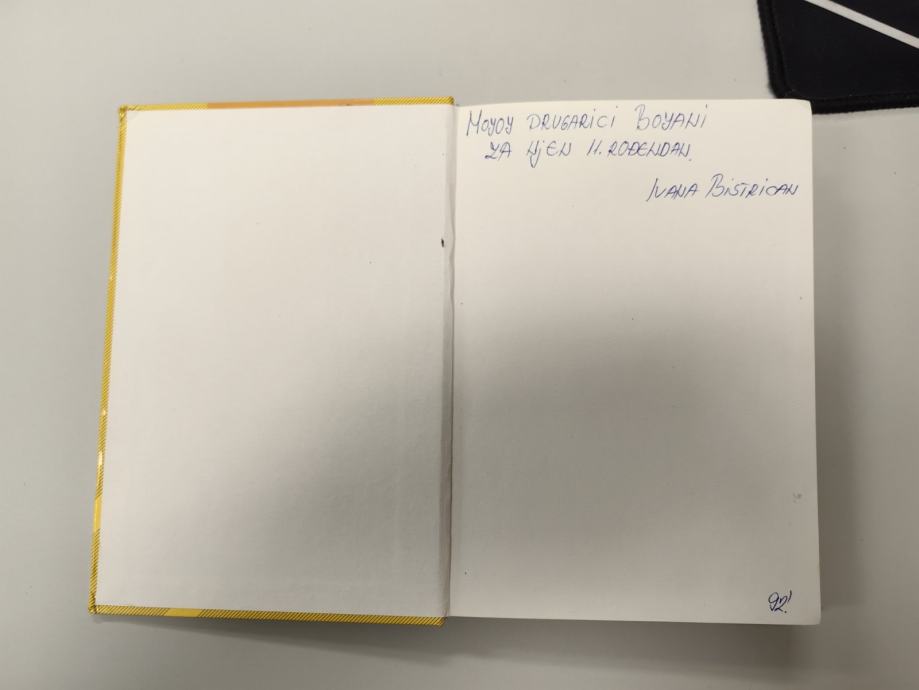 MOYOY DRUGARICI BOYANI
ZA NjEN 11. ROĐENDAN.
IVANA BISTRIČAN
92!